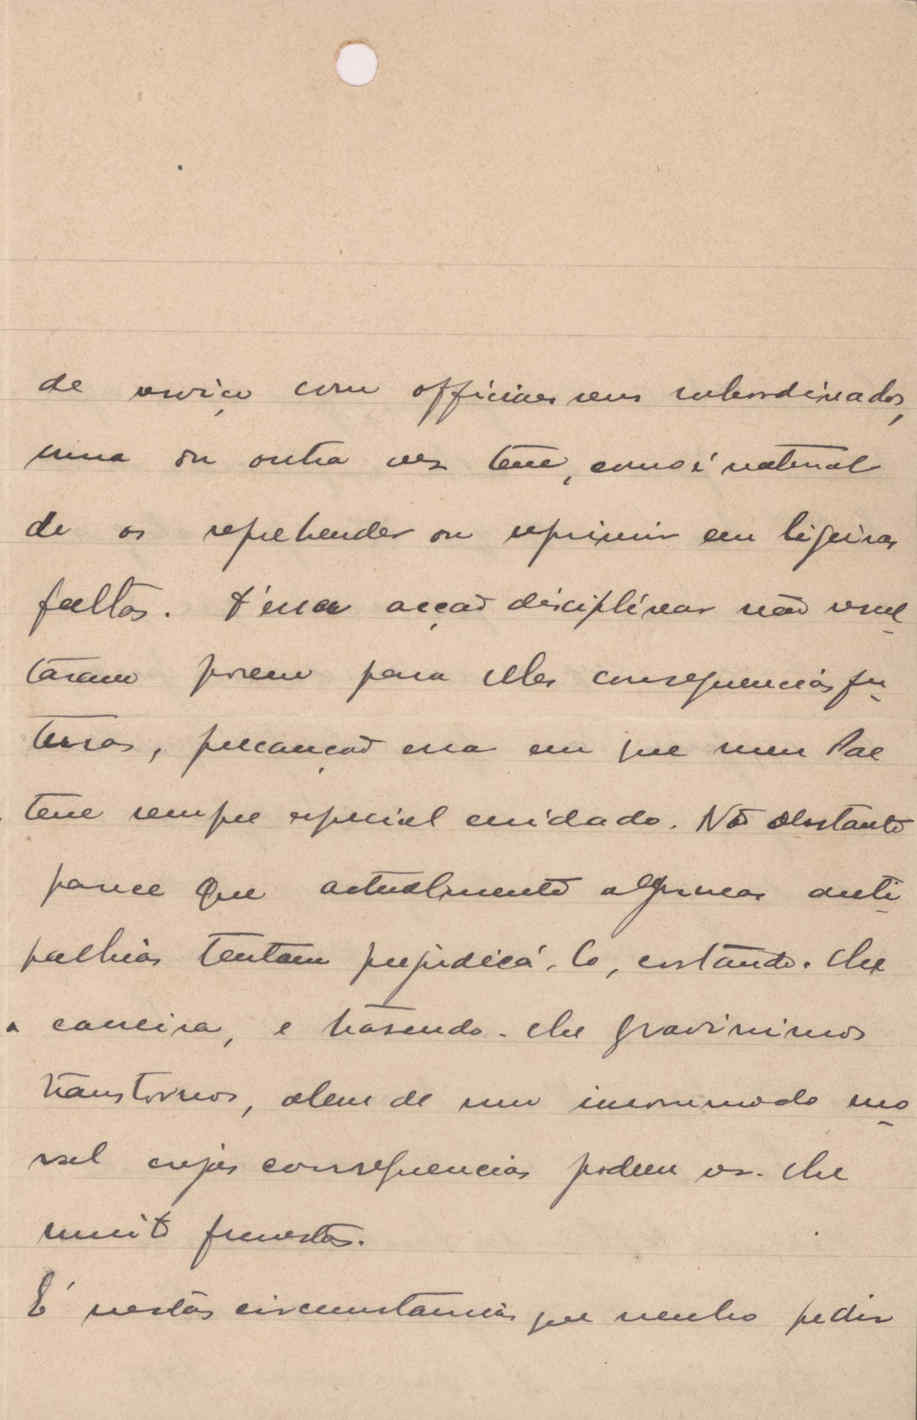 de serviço com officiaes seus subordinados,
uma ou outra vez teve, como é natural
de os reprehender ou reprimir em ligeiras
faltas. D'essa acção disciplinar não resul-
taram porem para elles consequencias fu-
turas, precaução essa em que meu Pae
teve sempre especial cuidado. Não obstante
parece que actualmente algumas anti-
pathias tentam prejudicá-lo, cortando-lhe
a carreira, e trazendo-lhe gravissimos
transtornos, alem de um incommodo mo-
ral cujas consequencias podem ser-lhe
muito funestas.
É nestas circumstancias que venho pedir